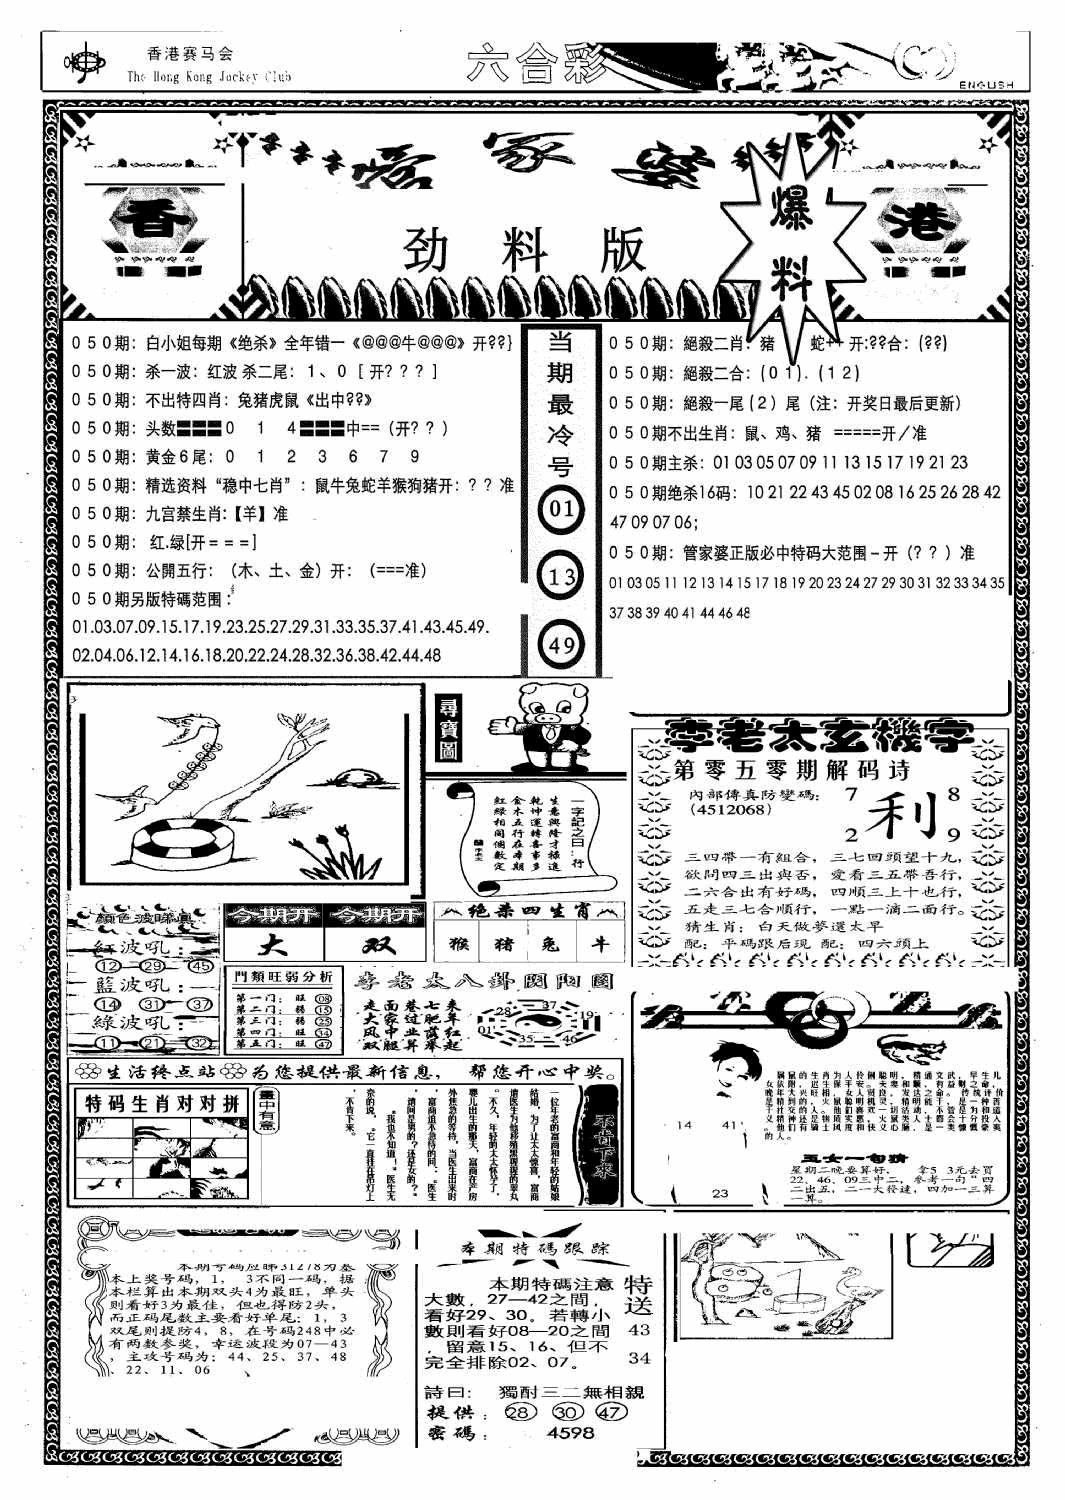 香港赛马会
The Hong Kong Jockey Club
六合彩
ENGLISH
管家婆
劲料版
香
港
爆料
050期：白小姐每期《绝杀》全年错一《@@@牛@@@》开??}
050期：杀一波：红波 杀二尾：1、0 [开? ? ? ]
050期：不出特四肖：兔猪虎鼠《出中??》
050期：头数〓〓〓0 1 4〓〓〓中==（开? ? ）
050期：黄金6尾：0 1 2 3 6 7 9
050期：精选资料“稳中七肖”：鼠牛兔蛇羊猴狗猪开：? ? 准
050期：九宫禁生肖:【羊】准
050期： 红.绿[开===]
050期：公開五行：（木、土、金）开：（===准）
050期另版特碼范围：
01.03.07.09.15.17.19.23.25.27.29.31.33.35.37.41.43.45.49.
02.04.06.12.14.16.18.20.22.24.28.32.36.38.42.44.48
当期最冷号
01
13
49
050期：絕殺二肖：猪 蛇++ 开:??合：(??)
050期：絕殺二合：(01).(12)
050期：絕殺一尾(2)尾（注：开奖日最后更新）
050期不出生肖：鼠、鸡、猪 =====开/准
050期主杀：01 03 05 07 09 11 13 15 17 19 21 23
050期绝杀16码：10 21 22 43 45 02 08 16 25 26 28 42
47 09 07 06；
050期：管家婆正版必中特码大范围－开（? ? ）准
01 03 05 11 12 13 14 15 17 18 19 20 23 24 27 29 30 31 32 33 34 35
37 38 39 40 41 44 46 48
尋寶圖
一字記之曰：行
生意興隆才極進
乾坤運轉喜事多
金木五行在本期
紅綠相間個數定
李老太玄機字
第零五零期解码诗
內部傳真防變碼：
(4512068)
7
8
利
2
9
三四帶一有組合，三七回頭望十九，
欲問四三出與否，愛看三五帶吾行，
二六合出有好码，四順三上十也行，
五走三七合順行，一點一滴二面行。
猜生肖：白天做夢還太早
配：平碼跟后現 配：四六頭上
顏色波睇真
紅波吼：
12 29 45
藍波吼：
14 31 37
綠波吼：
11 21 32
今期开 今期开
大 双
绝杀四生肖
猴 猪 兔 牛
門類旺弱分析
第一门：旺 08
第二门：弱 15
第三门：弱 25
第四门：旺 34
第五门：旺 47
李老太八卦陰阳圖
走面巷七来
大家过肥年
风中业荫红
双腿算举起
28
37
19
01
35
46
生活终点站 为您提供最新信息， 帮您开心中奖。
特码生肖对对拼
畫中有意
不肯下來
一位年老的富商和年轻的姑娘
结婚，为了让太太惊喜，富商
请医生为他移殖黑猩猩的睾丸
。不久，年轻的太太怀孕了，
婴儿出生的那天，富商在产房
外焦急的等待，当医生出来时
，富商迫不急待的问：“医生
，请问是男的？还是女的？”
“我也不知道！”医生无
奈的说，“它一直挂在吊灯上
，不肯下来。”
14
41
23
五女一句猜
星期二晚要算好， 拿5 3元去買
22、46、09三中二，参考一句“四
二出五，二一大役達，四加一三算
一算。
本期号码应睇31278为基
本上奖号码，1， 3不同一码，据
本栏算出本期双头4为最旺，单头
则看好3为最佳，但也得防2头，
而正码尾数主要看好单尾：1，3
双尾则提防4，8，在号码248中必
有两数参奖，幸运波段为07—43
，主攻号码为：44、25、37、48
、22、11、06
本期特碼跟踪
本期特碼注意
大數，27—42之間，
看好29、30。若轉小
數則看好08—20之間
，留意15、16、但不
完全排除02、07。
特送
43
34
詩曰： 獨酎三二無相親
提供：28 30 47
密碼： 4598